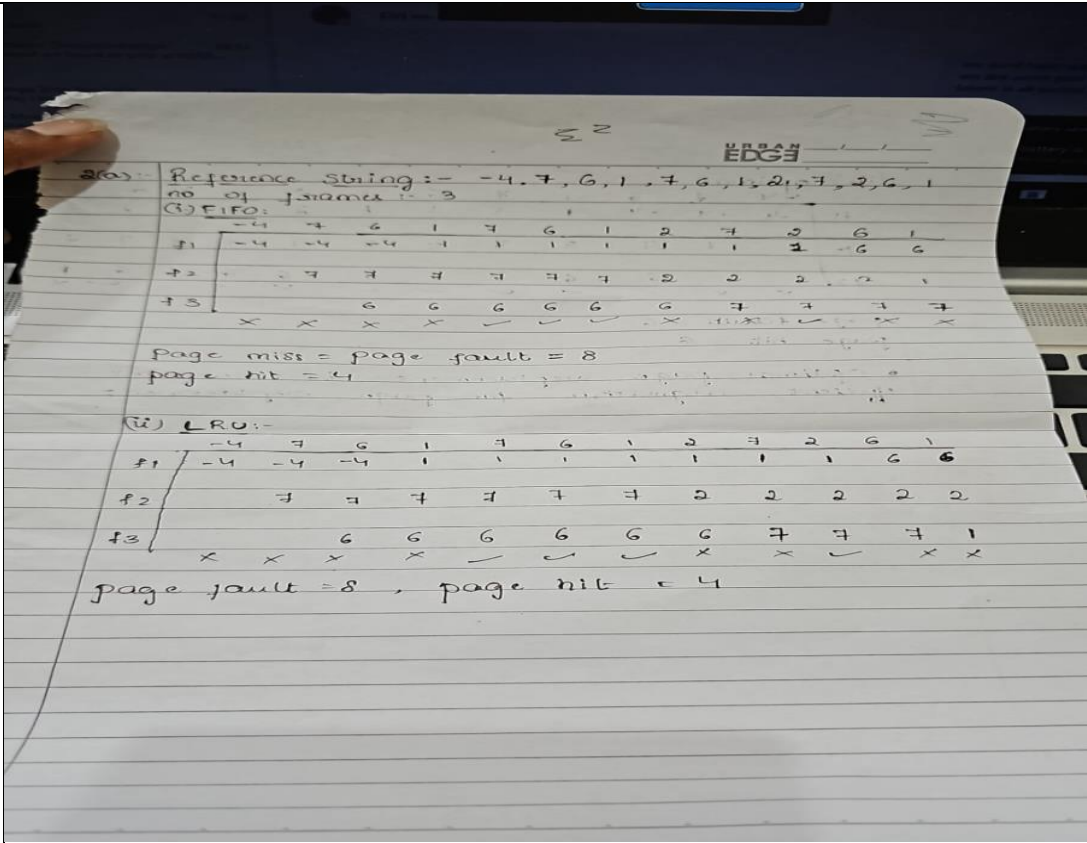 URBAN
EDGE
2(a) Reference String :- -4, 7, 6, 1, 7, 6, 1, 2, 7, 2, 6, 1
no of frames :- 3
(i) FIFO:
-4 7 6 1 7 6 1 2 7 2 6 1
f1 -4 -4 -4 1 1 1 1 1 1 1 6 6
f2 7 7 7 7 7 7 2 2 2 2 1
f3 6 6 6 6 6 6 7 7 7 7
× × × × ✓ ✓ ✓ × × ✓ × ×
Page miss = page fault = 8
page hit = 4
(ii) LRU:-
-4 7 6 1 7 6 1 2 7 2 6 1
f1 -4 -4 -4 1 1 1 1 1 1 1 6 6
f2 7 7 7 7 7 7 2 2 2 2 2
f3 6 6 6 6 6 6 7 7 7 1
× × × × ✓ ✓ ✓ × × ✓ × ×
page fault = 8 , page hit = 4